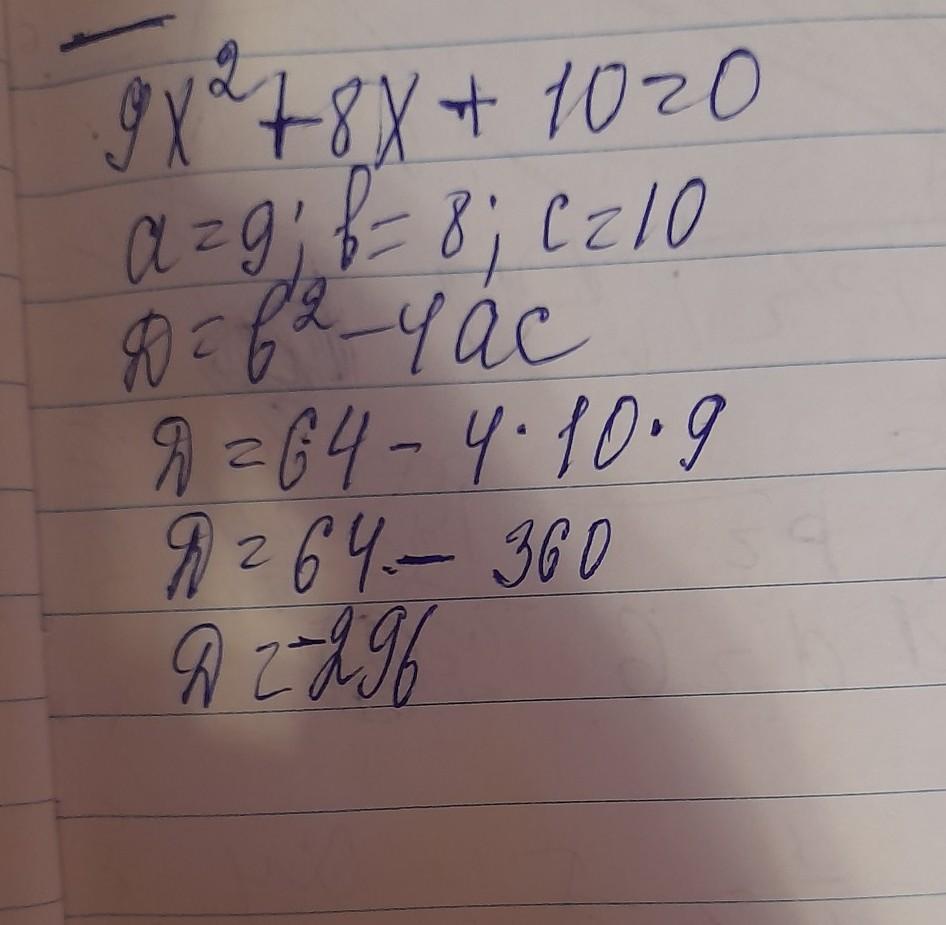 9x²+8x+10=0
a=9; b=8; c=10
D=b²-4ac
D=64-4·10·9
D=64-360
D=-296